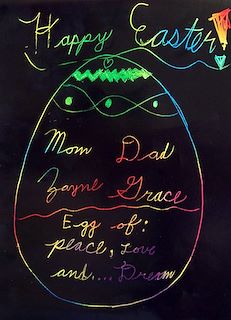 Happy Easter!
Mom Dad
Zayne Grace
Egg of:
peace, Love
and.... Dream